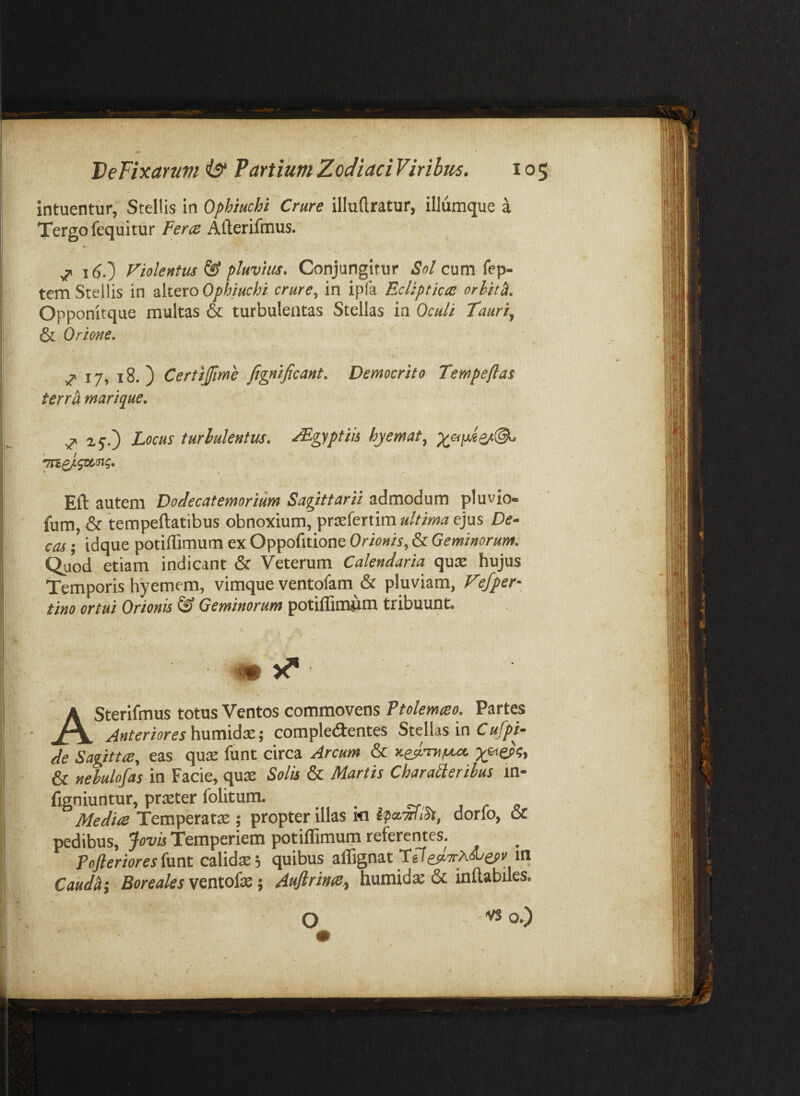 De Fixarum & Partium Zodiaci Viribus. 105
intuentur, Stellis in Ophiuchi Crure illuſtratur, illumque à
Tergo ſequitur Feræ Aſteriſmus.
♐ 16.) Violentus & pluvius. Conjungitur Sol cum ſep-
tem Stellis in altero Ophiuchi crure, in ipſa Eclipticæ orbitâ.
Opponitque multas & turbulentas Stellas in Oculi Tauri,
& Orione.
♐ 17, 18. ) Certiſſimè ſignificant. Democrito Tempeſtas
terrâ marique.
♐ 25.) Locus turbulentus. Ægyptiis hyemat, χειμέριος
περίστασις.
Eſt autem Dodecatemorium Sagittarii admodum pluvio-
ſum, & tempeſtatibus obnoxium, præſertim ultima ejus De-
cas; idque potiſſimum ex Oppoſitione Orionis, & Geminorum.
Quod etiam indicant & Veterum Calendaria quæ hujus
Temporis hyemem, vimque ventoſam & pluviam, Veſper-
tino ortui Orionis & Geminorum potiſſimùm tribuunt.
♐
ASteriſmus totus Ventos commovens Ptolemæo. Partes
Anteriores humidæ; complectentes Stellas in Cuſpi-
de Sagittæ, eas quæ ſunt circa Arcum & κράτημα χειρὸς,
& nebuloſas in Facie, quæ Solis & Martis Characteribus in-
ſigniuntur, præter ſolitum.
Mediæ Temperatæ; propter illas in ἐφαπτίδι, dorſo, &
pedibus, Jovis Temperiem potiſſimum referentes.
Poſteriores ſunt calidæ; quibus aſſignat Τετράπλευρον in
Caudâ; Boreales ventoſæ; Auſtrinæ, humidæ & inſtabiles.
O ♑ 0.)